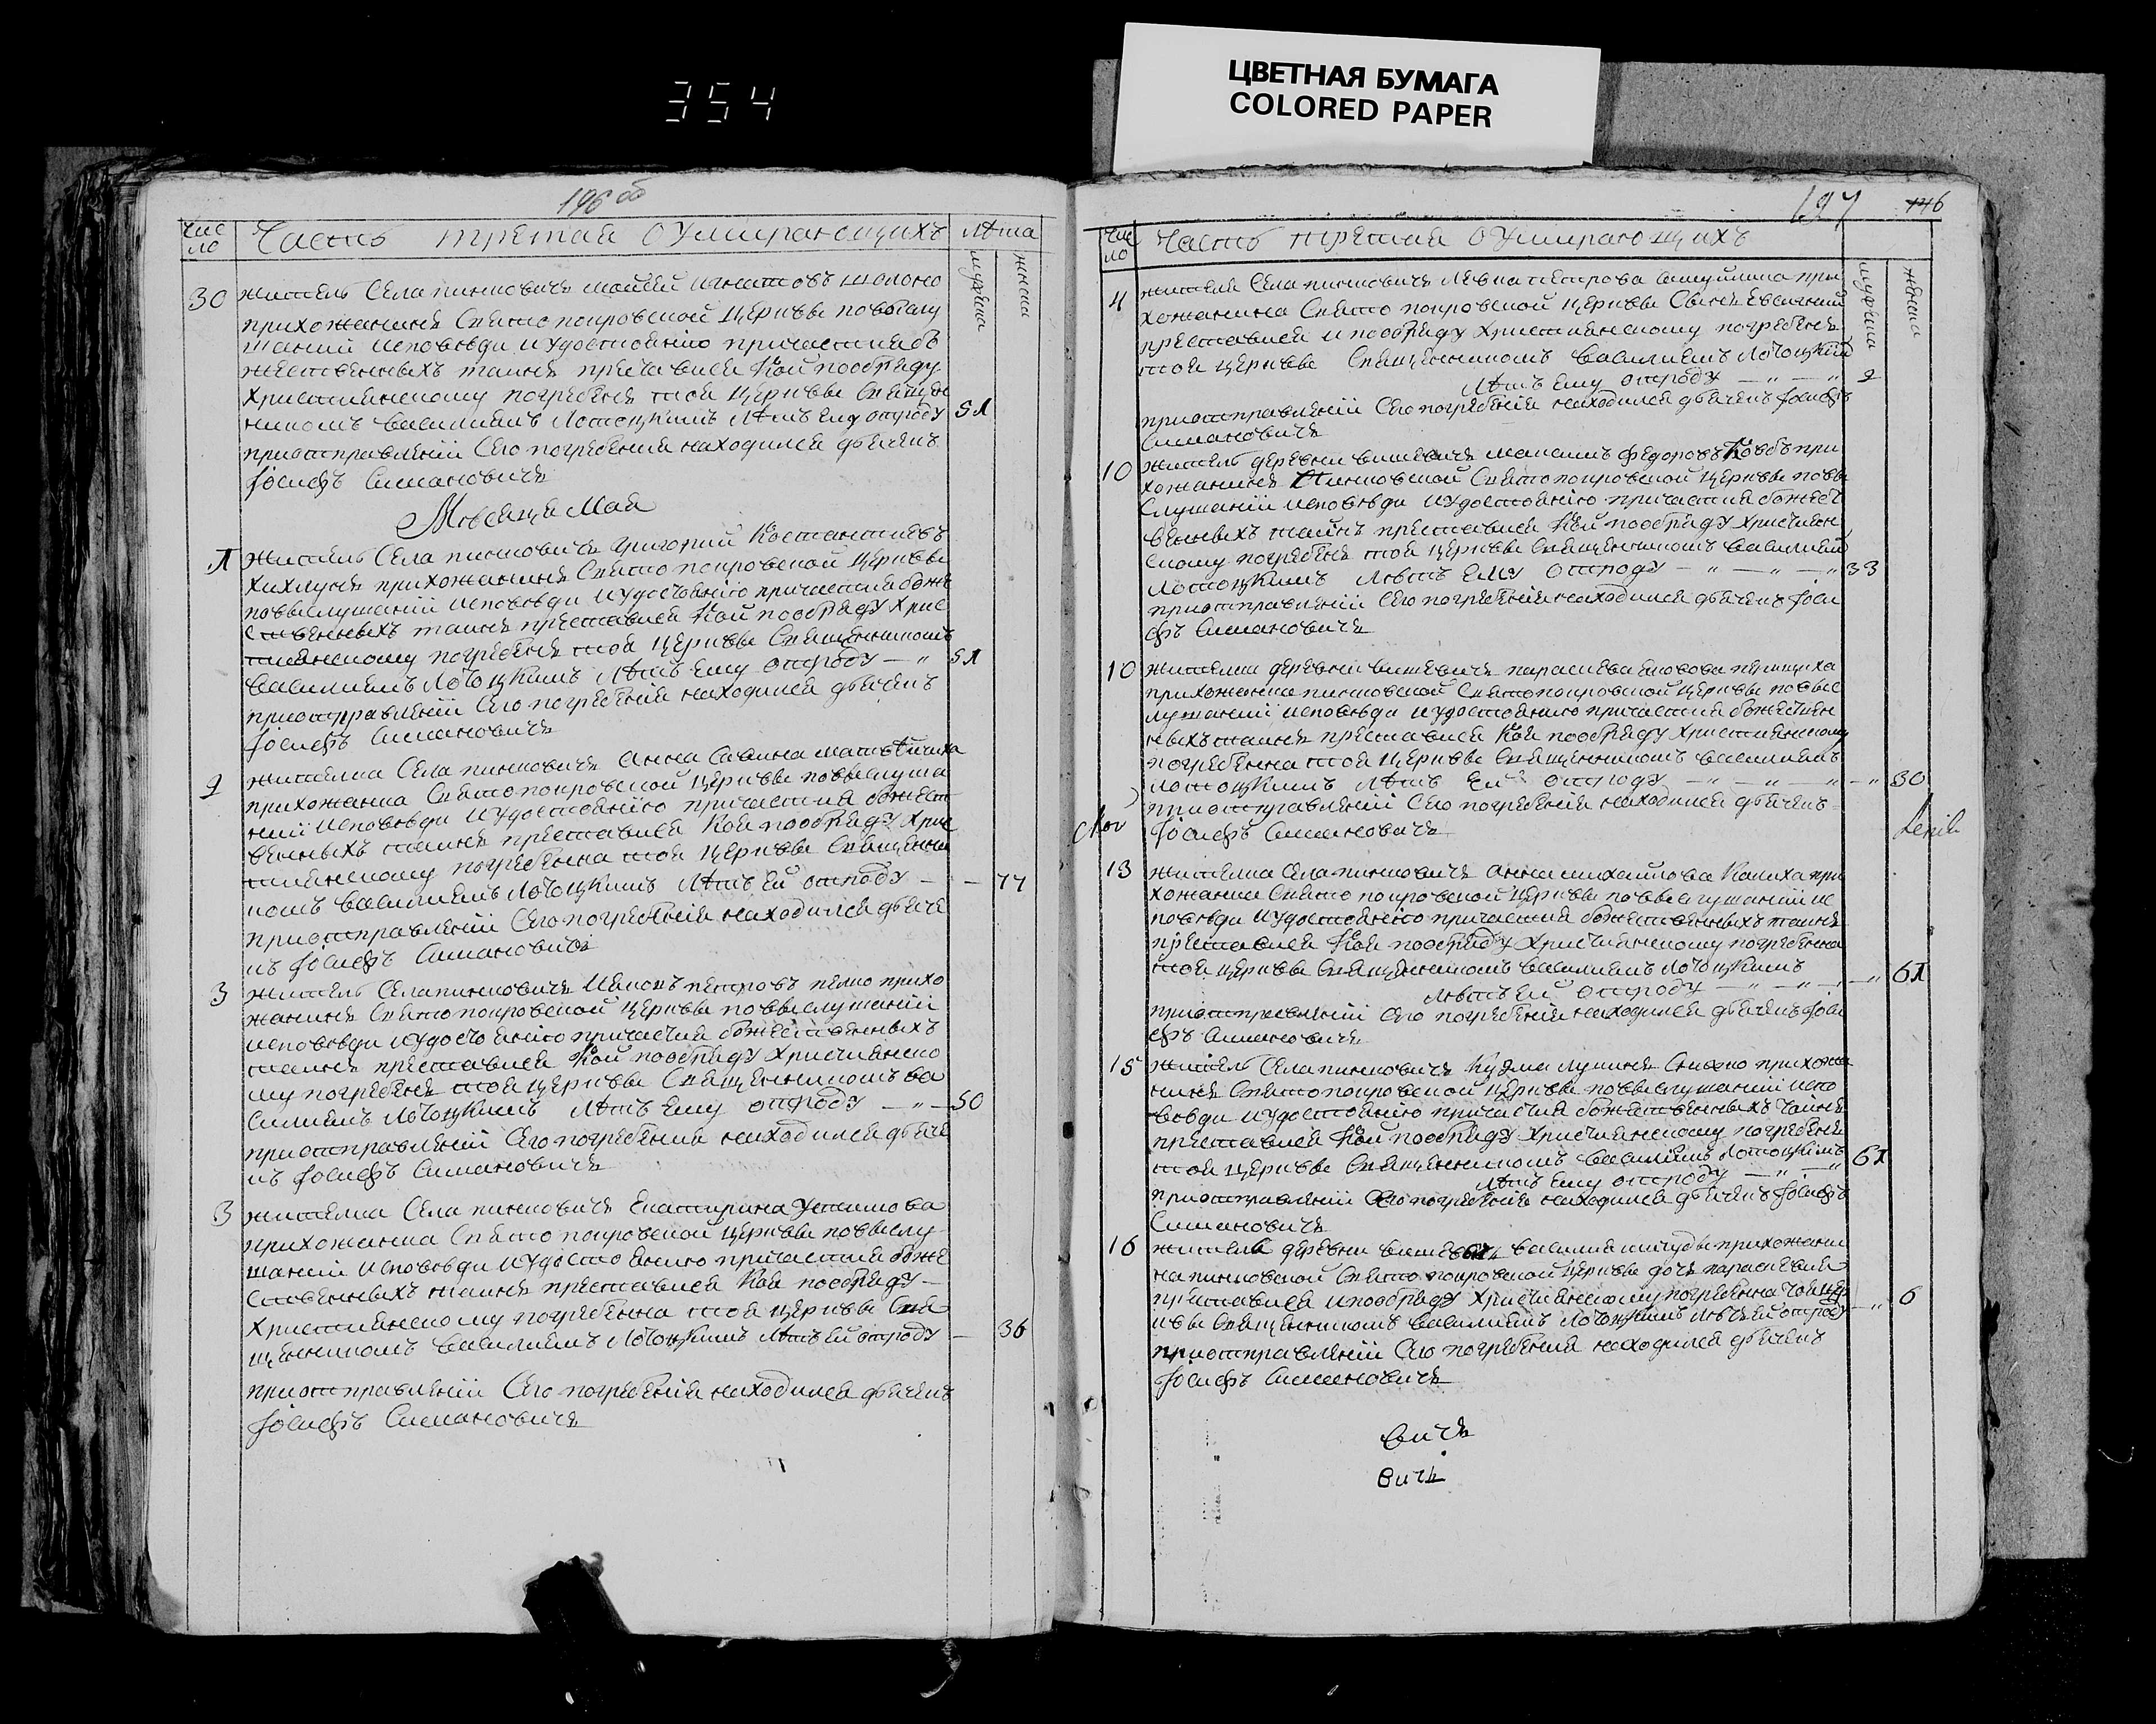 354
ЦВЕТНАЯ БУМАГА
COLORED PAPER
196 об
Чис
ло
Часть третая о Умирающихъ
лѣта
мужеска
женска
30
житель Села пинковичъ мойсей игнатовъ шоломо
прихожанинъ Свято покровской Церквы повыслу
шаний исповѣди и удостоянію причастия бо
жественныхъ таинъ преставися Кой пообряду
Християнскому погребенъ той Церквы Священ
никомъ василиемъ Лотоцкимъ лѣтъ ему отроду 51
приотправленій Сего погребения находился дьячекъ
Іосифъ Симановичъ
Мѣсяца Мая
1
житель Села пинковичъ григорий Костантиевъ
Хихлунъ прихожанинъ Свято покровской Церквы
повыслушаний исповѣди и удостоянію причастия боже
ственныхъ таинъ преставися Кой пообряду Хрис
тиянскому погребенъ той Церквы Священникомъ
василиемъ Лотоцкимъ лѣтъ ему отроду — „ 51
приотправленій Сего погребенія находился дьячекъ
Іосифъ Симановичъ
2
жителка Села пинковичъ Анна Савина матвѣйчиха
прихожанка Святопокровской Церквы повыслуша
ний исповѣди и удостоянію причастия божест
венныхъ таинъ преставися Коя пообряду Хрис
тиянскому погребенна той Церквы Священни
комъ василиемъ Лотоцкимъ лѣтъ ей отроду — — 77
приотправленій Сего погребенія находился дьяче
къ Іосифъ Симановичъ
3
житель Села пинковичъ Иванъ петровъ прихо
жанинъ Свято покровской Церквы повыслушаний
исповѣди и удостоянію причастия божественныхъ
таинъ преставися Кой пообряду Християнско
му погребенъ той Церквы Священникомъ ва
силиемъ Лотоцкимъ лѣтъ ему отроду — „ — 50
приотправленій Сего погребения находился дьяче
къ Іосифъ Симановичъ
3
жителка Села пинковичъ Екатирина Устимова
прихожанка Свято покровской Церквы повыслу
шаний исповѣди и удостоянию причастия боже
ственныхъ таинъ преставися Коя пообряду —
Християнскому погребенна той Церквы Свя
щенникомъ василиемъ Лотоцкимъ лѣтъ ей отроду — 36
приотправленій Сего погребенія находился дьячекъ
Іосифъ Симановичъ
197
146
Чис
ло
Часть третая о Умирающихъ
мужеска
женска
4
жителя Села пинковичъ петрова при
хожанина Свято покровской Церквы Сынъ Евгений
преставися и пообряду Християнскому погребенъ
той Церквы Священникомъ василиемъ Лотоцкий
лѣтъ ему отроду — „ — „ 2
приотправленій Сего погребенія находился дьячекъ Іосифъ
Симановичъ
10
житель деревни вишевичъ максимъ федоровъ Ковбъ при
хожанинъ Пинковской Святопокровской Церквы повы
слушаний исповѣди и удостоянію причастия божест
венныхъ таинъ преставися Кой пообряду Християн
скому погребенъ той Церквы Священникомъ василий
Лотоцкимъ лѣтъ ему отроду — „ — „ — „ 33
приотправленій Сего погребенія находился дьячекъ Іоси
фъ Симановичъ
10
жителка деревни вишевичъ параскева
прихожанка пинковской Святопокровской Церквы повыс
лушаний исповѣди и удостоянию причастия божествен
ныхъ таинъ преставися Коя пообряду Християнскому
погребенна той Церквы Священникомъ василиемъ
Лотоцкимъ лѣтъ ей отроду — „ — „ — „ — „ 30
приотправленій Сего погребенія находился дьячекъ
Іосифъ Симановичъ
13
жителка Села пинковичъ Анна михайлова при
хожанка Свято покровской Церквы повыслушаний ис
повѣди и удостоянію причастия божественныхъ таинъ
преставися Коя пообряду Християнскому погребенна
той Церквы Священникомъ василиемъ Лотоцкимъ
лѣтъ ей отроду — „ — „ — „ 61
приотправленій Сего погребенія находился дьячекъ Іоси
фъ Симановичъ
15
житель Села пинковичъ Кузма лукинъ прихожа
нинъ Святопокровской Церквы повыслушаний испо
вѣди и удостоянію причастия божественныхъ таинъ
преставися Кой пообряду Християнскому погребенъ
той Церквы Священникомъ василиемъ Лотоцкимъ
лѣтъ ему отроду — „ — „ 61
приотправленій Сего погребенія находился дьячекъ Іосифъ
Симановичъ
16
жителя деревни василия прихожани
на пинковской Свято покровской Церквы дочь параскевия
преставися и пообряду Християнскому погребенна той Цер
квы Священникомъ василиемъ Лотоцкимъ лѣтъ ей отроду — „ 6
приотправленій Сего погребения находился дьячекъ
Іосифъ Симановичъ
вичъ
вичъ